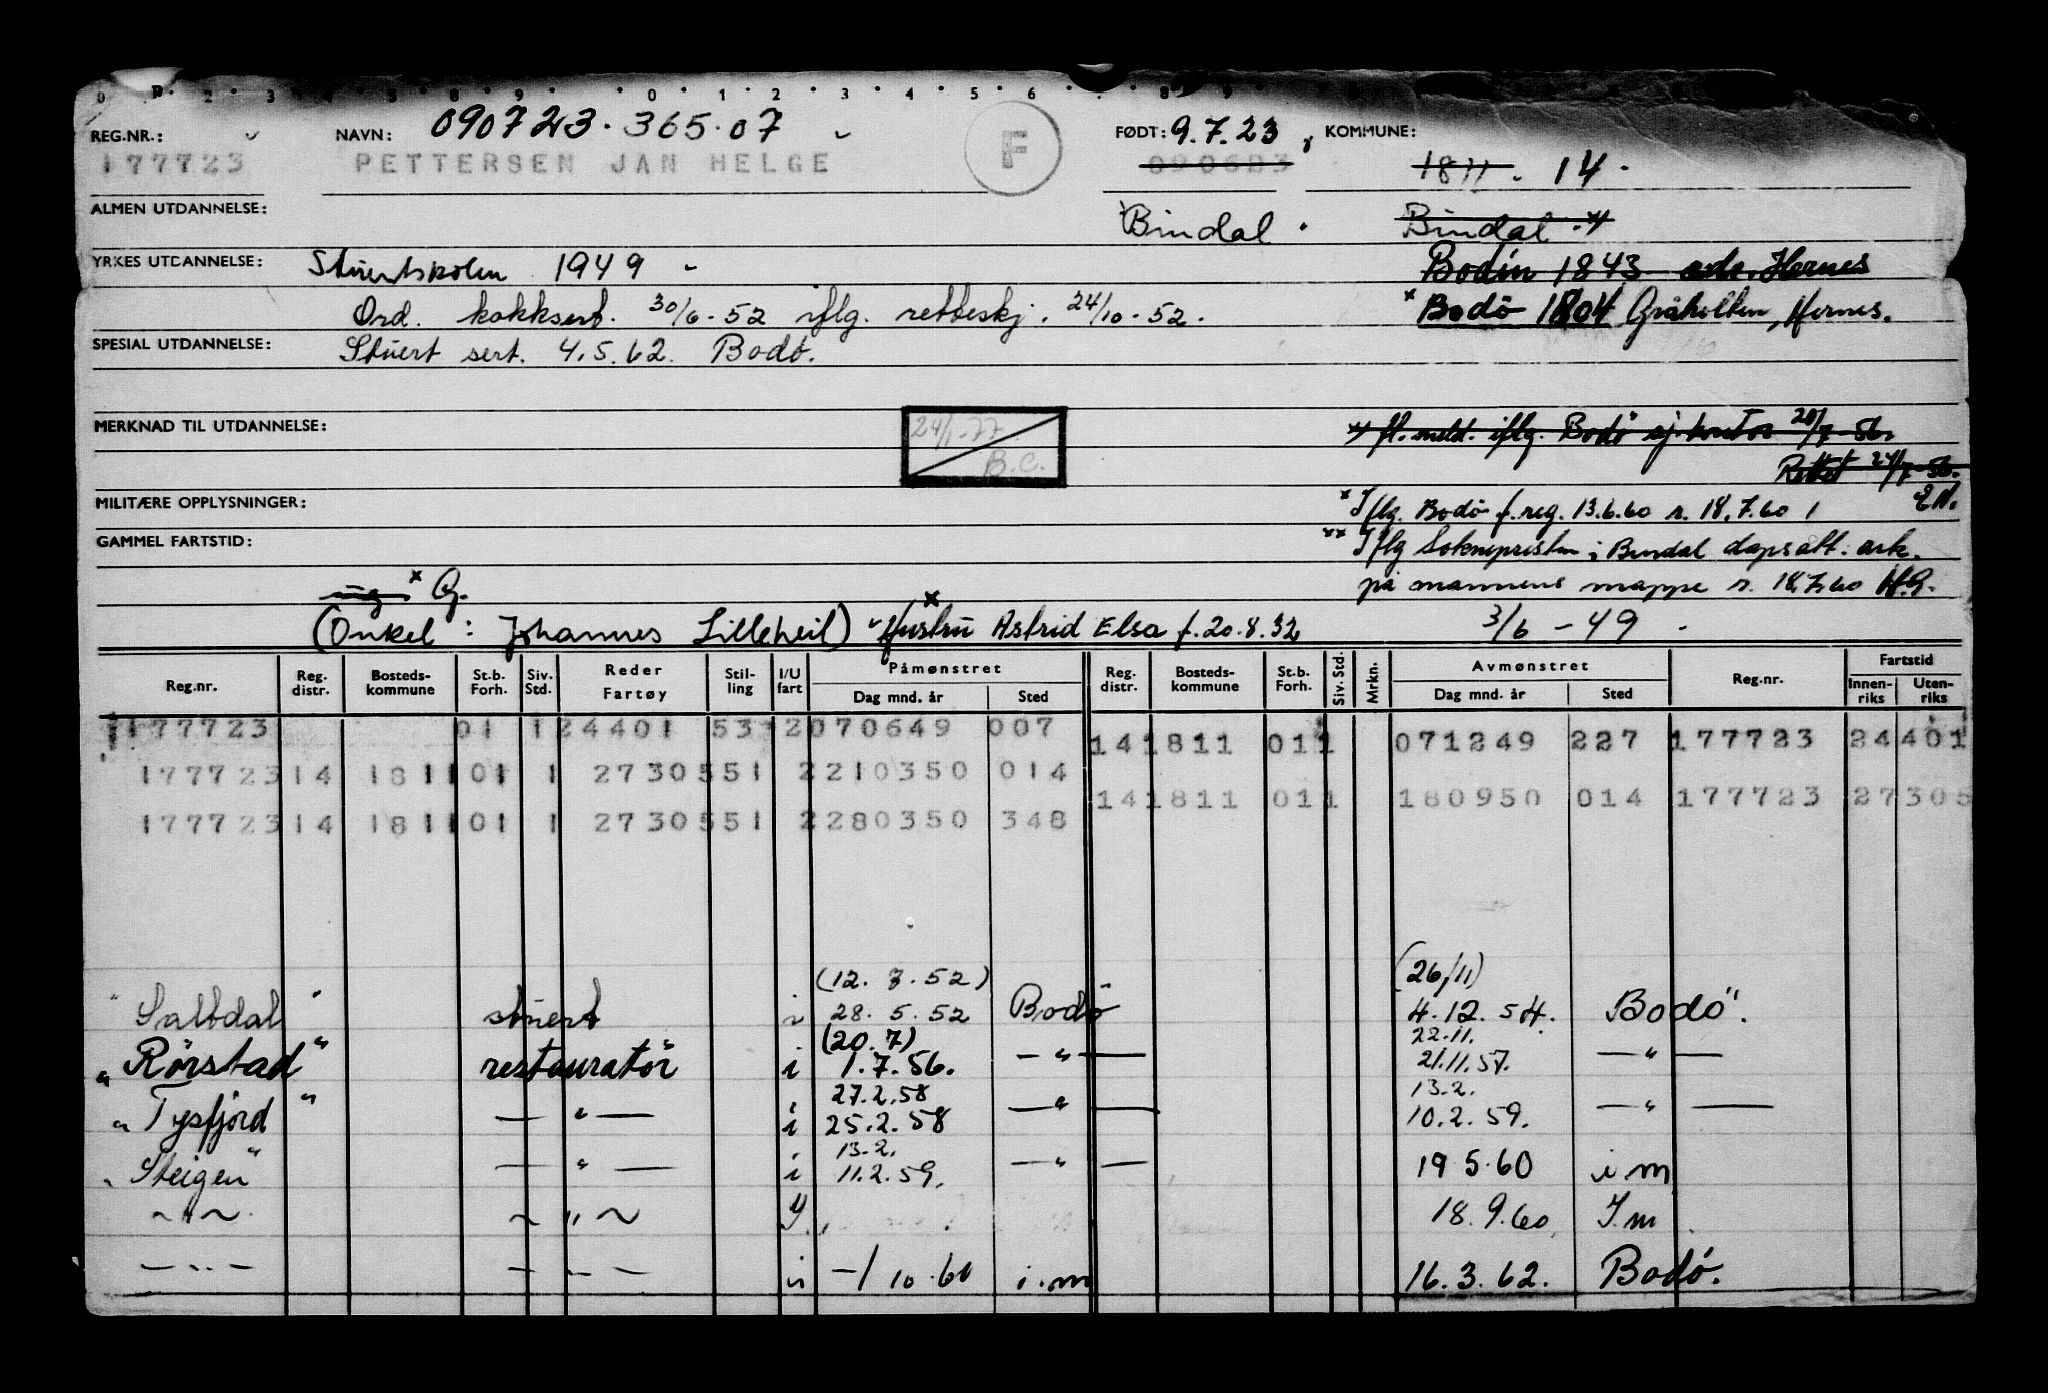 REG.NR.: NAVN: 090723.365.07 F FØDT: 9.7.23 KOMMUNE:
177723 PETTERSEN JAN HELGE 090623 1811. 14.
ALMEN UTDANNELSE: Bindal . Bindal
YRKES UTDANNELSE: Stuertskolen 1949 - Bodin 1843 Hernes
Ord. kokksert. 30/6-52 iflg. rettbeskj. 24/10-52. Bodö 1804 Gråholten, Hernes.
SPESIAL UTDANNELSE: Stuert sert. 4.5.62. Bodö.
MERKNAD TIL UTDANNELSE: 24/1-77 B.C. fl. meld. iflg. Bodö sj. kontor 20/7-56.
Rettet 24/7-56.
MILITÆRE OPPLYSNINGER: x Iflg. Bodö f.reg. 13.6.60 r. 18.7.60 EN.
GAMMEL FARTSTID: xx Iflg Soknepresten i Bindal dapsatt. ark.
ug. x G. på mannens mappe r. 18.7.60 H.G.
(Onkel: Johannes Lilleheil) Hustru Astrid Elsa f. 20.8.32 3/6-49 -
Reg.nr. Reg. distr. Bosteds-kommune St.b. Forh. Siv. Std. Reder Fartøy Stil-ling I/U fart Påmønstret Dag mnd. år Sted Reg. distr. Bosteds-kommune St.b. Forh. Siv. Std. Mrkn. Avmønstret Dag mnd. år Sted Reg.nr. Fartstid Innen-riks Uten-riks
177723 01 1 24401 53 2 070649 007 14 1811 01 1 071249 227 177723 24401
177723 14 1811 01 1 27305 51 2 210350 014
14 1811 01 1 180950 014 177723 27305
177723 14 1811 01 1 27305 51 2 280350 348
(12. 7.52) (26/11)
"Saltdal" stuert i 28. 5.52 Bodö 4.12.54. Bodö.
(20.7) 22.11.
"Rörstad" restauratör i 1.7.56. —"— 21.11.57. —"—
27.2.58 13.2.
"Tysfjord" —"— i 25.2.58 —"— 10.2.59. —"—
13.2.
"Steigen" —"— i 11.2.59. —"— 19 5.60 i m
—"— —"— 18.9.60 I.m
—"— —"— i -/10.60 i.m 16.3.62. Bodö.